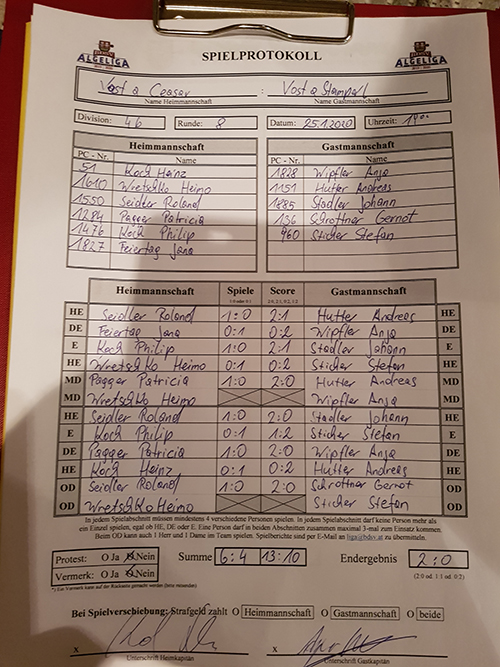 ALGELIGA SPIELPROTOKOLL ALGELIGA
Vost a Ceasar : Vost a Stamperl
Name Heimmannschaft Name Gastmannschaft
Division: 4b Runde: 8 Datum: 25.1.2020 Uhrzeit: 14°°
Heimmannschaft Gastmannschaft
PC - Nr. Name PC - Nr. Name
51 Koch Heinz 1828 Wipfler Anja
1610 Wretschko Heimo 1151 Hutter Andreas
1550 Seidler Roland 1885 Stadler Johann
1284 Pagger Patricia 136 Schrottner Gernot
1476 Koch Philip 960 Sticher Stefan
1827 Feiertag Jana
Heimmannschaft Spiele Score Gastmannschaft
1:0 oder 0:1 2:0, 2:1, 0:2, 1:2
HE Seidler Roland 1:0 2:1 Hutter Andreas HE
DE Feiertag Jana 0:1 0:2 Wipfler Anja DE
E Koch Philip 1:0 2:1 Stadler Johann E
HE Wretschko Heimo 0:1 0:2 Sticher Stefan HE
MD Pagger Patricia 1:0 2:0 Hutter Andreas MD
MD Wretschko Heimo Wipfler Anja MD
HE Seidler Roland 1:0 2:0 Stadler Johann HE
E Koch Philip 0:1 1:2 Sticher Stefan E
DE Pagger Patricia 1:0 2:0 Wipfler Anja DE
HE Koch Heinz 0:1 0:2 Hutter Andreas HE
OD Seidler Roland 1:0 2:0 Schrottner Gernot OD
OD Wretschko Heimo Sticher Stefan OD
In jedem Spielabschnitt müssen mindestens 4 verschiedene Personen spielen. In jedem Spielabschnitt darf keine Person mehr als
ein Einzel spielen, egal ob HE, DE oder E. Eine Person darf in beiden Abschnitten zusammen maximal 3-mal zum Einsatz kommen.
Beim OD kann auch 1 Herr und 1 Dame im Team spielen. Spielberichte sind per E-Mail an liga@bdsv.at zu übermitteln.
Protest: O Ja O Nein Summe 6:4 13:10 Endergebnis 2:0
Vermerk: O Ja O Nein (2:0 od. 1:1 od. 0:2)
*) Ein Vermerk kann auf der Rückseite gemacht werden (bitte umranden)
Bei Spielverschiebung: Strafgeld zahlt O Heimmannschaft O Gastmannschaft O beide
x x
Unterschrift Heimkapitän Unterschrift Gastkapitän